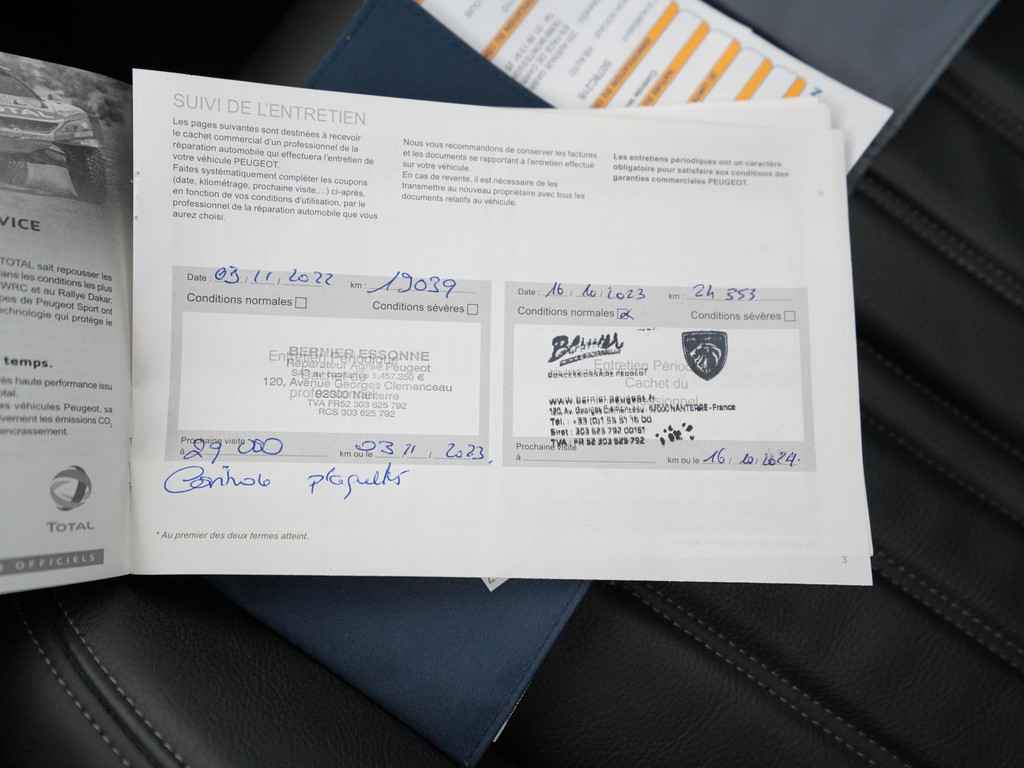 SUIVI DE L'ENTRETIEN
Les pages suivantes sont destinées à recevoir
le cachet commercial d'un professionnel de la
réparation automobile qui effectuera l'entretien de
votre véhicule PEUGEOT.
Faites systématiquement compléter les coupons
(date, kilométrage, prochaine visite…) ci-après,
en fonction de vos conditions d'utilisation, par le
professionnel de la réparation automobile que vous
aurez choisi.
Nous vous recommandons de conserver les factures
et les documents se rapportant à l'entretien effectué
sur votre véhicule.
En cas de revente, il est nécessaire de les
transmettre au nouveau propriétaire avec tous les
documents relatifs au véhicule.
Les entretiens périodiques ont un caractère
obligatoire pour satisfaire aux conditions des
garanties commerciales PEUGEOT.
Date : 03.11.2022 km : 19039
Conditions normales Conditions sévères
BERNIER ESSONNE
Réparateur Agréé Peugeot
120, Avenue Georges Clemenceau
92000 Nanterre
TVA FR52 303 625 792
RCS 303 625 792
Prochaine visite *
à 29 000 km ou le 03.11.2023.
Contrôle plaquettes
* Au premier des deux termes atteint.
Date : 16.10.2023 km : 24 353
Conditions normales Conditions sévères
Bernier
www.bernier.peugeot.fr
120, Av. Georges Clemenceau, 92000 NANTERRE - France
Siret : 303 625 792 00161
TVA : FR 52 303 625 792
Prochaine visite
à km ou le 16.10.2024.
3
VICE
TOTAL sait repousser les
ans les conditions les plus
WRC et au Rallye Dakar.
pes de Peugeot Sport ont
echnologie qui protège le
temps.
ès haute performance issu
otal.
es véhicules Peugeot, sa
vement les émissions CO2
encrassement.
TOTAL
OFFICIELS